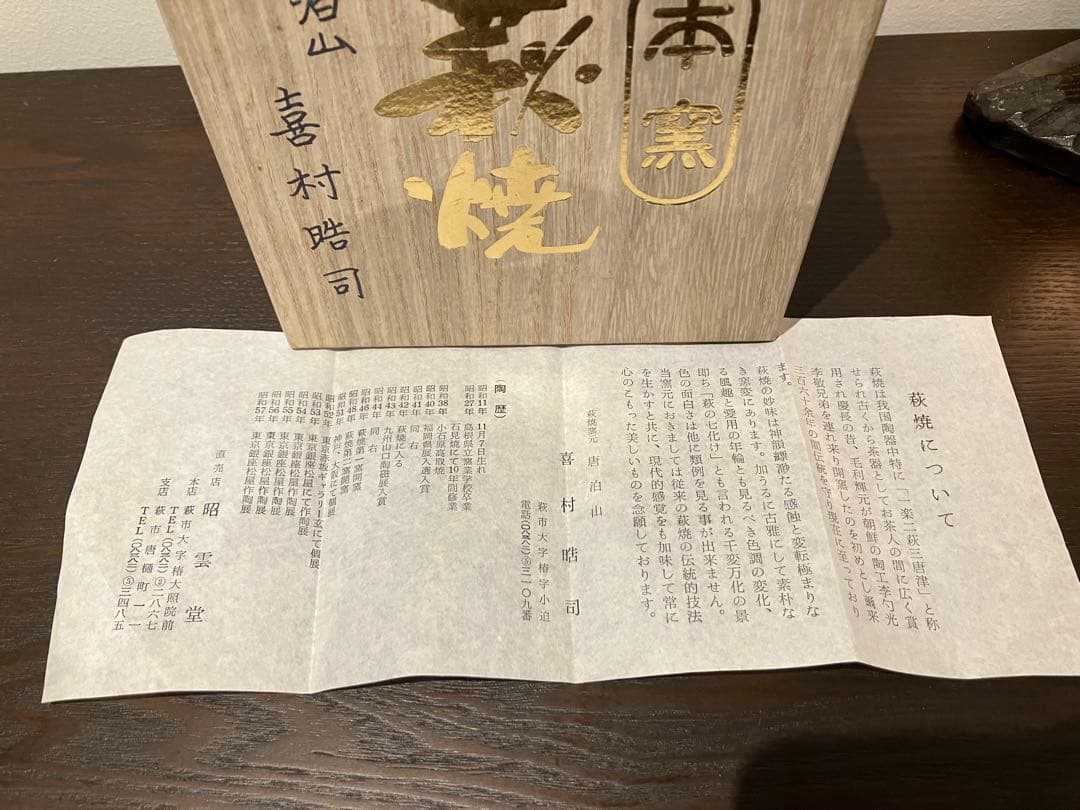 本窯
萩焼
泊山
喜村晧司
萩焼について
萩焼は我国陶器中特に「一楽二萩三唐津」と称
せられ古くから茶器としてお茶人の間に広く賞
用され慶長の昔、毛利輝元が朝鮮の陶工李勺光
李敬兄弟を連れ来り開窯したのを初めとし爾来
三百六十余年の間伝統を守り現在に至っており
ます。
萩焼の妙味は神韻縹渺たる感蝕と変転極まりな
き窯変にあります。加うるに古雅にして素朴な
る風趣と愛用の年輪とも見るべき色調の変化、
即ち「萩の七化け」とも言われる千変万化の景
色の面白さは他に類例を見る事が出来ません。
当窯元におきましては従来の萩焼の伝統的技法
を生かすと共に、現代的感覚をも加味して常に
心のこもった美しいものを念願しております。
萩焼窯元 唐泊山
喜村晧司
萩市大字椿字小迫
電話(〇八三八二)⑤三一〇九番
(陶歴)
昭和11年 11月7日生れ
昭和27年 島根県立窯業学校卒業
石見焼にて10年間修業
昭和38年 小石原高取焼
昭和40年 福岡県展入選入賞
昭和41年 同右
昭和42年 萩焼に入る
昭和43年 九州山口陶磁展入賞
昭和44年 同右
昭和46年 萩焼第一窯開窯
昭和48年 萩焼第二窯開窯
昭和51年 神戸、大阪にて個展
昭和52年 東京赤坂ギャラリー玄にて個展
昭和53年 東京銀座松屋にて作陶展
昭和54年 東京銀座松屋作陶展
昭和55年 東京銀座松屋作陶展
昭和56年 東京銀座松屋作陶展
昭和57年 東京銀座松屋作陶展
直売店 昭雲堂
本店 萩市大字椿大照院前
TEL(〇八三八二)②二八六七
支店 萩市唐樋町一一
TEL(〇八三八二)⑤三四八五